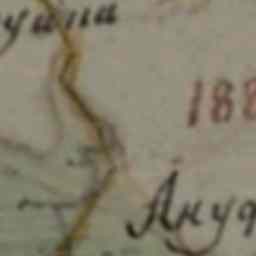 ушпа
188
Ануф